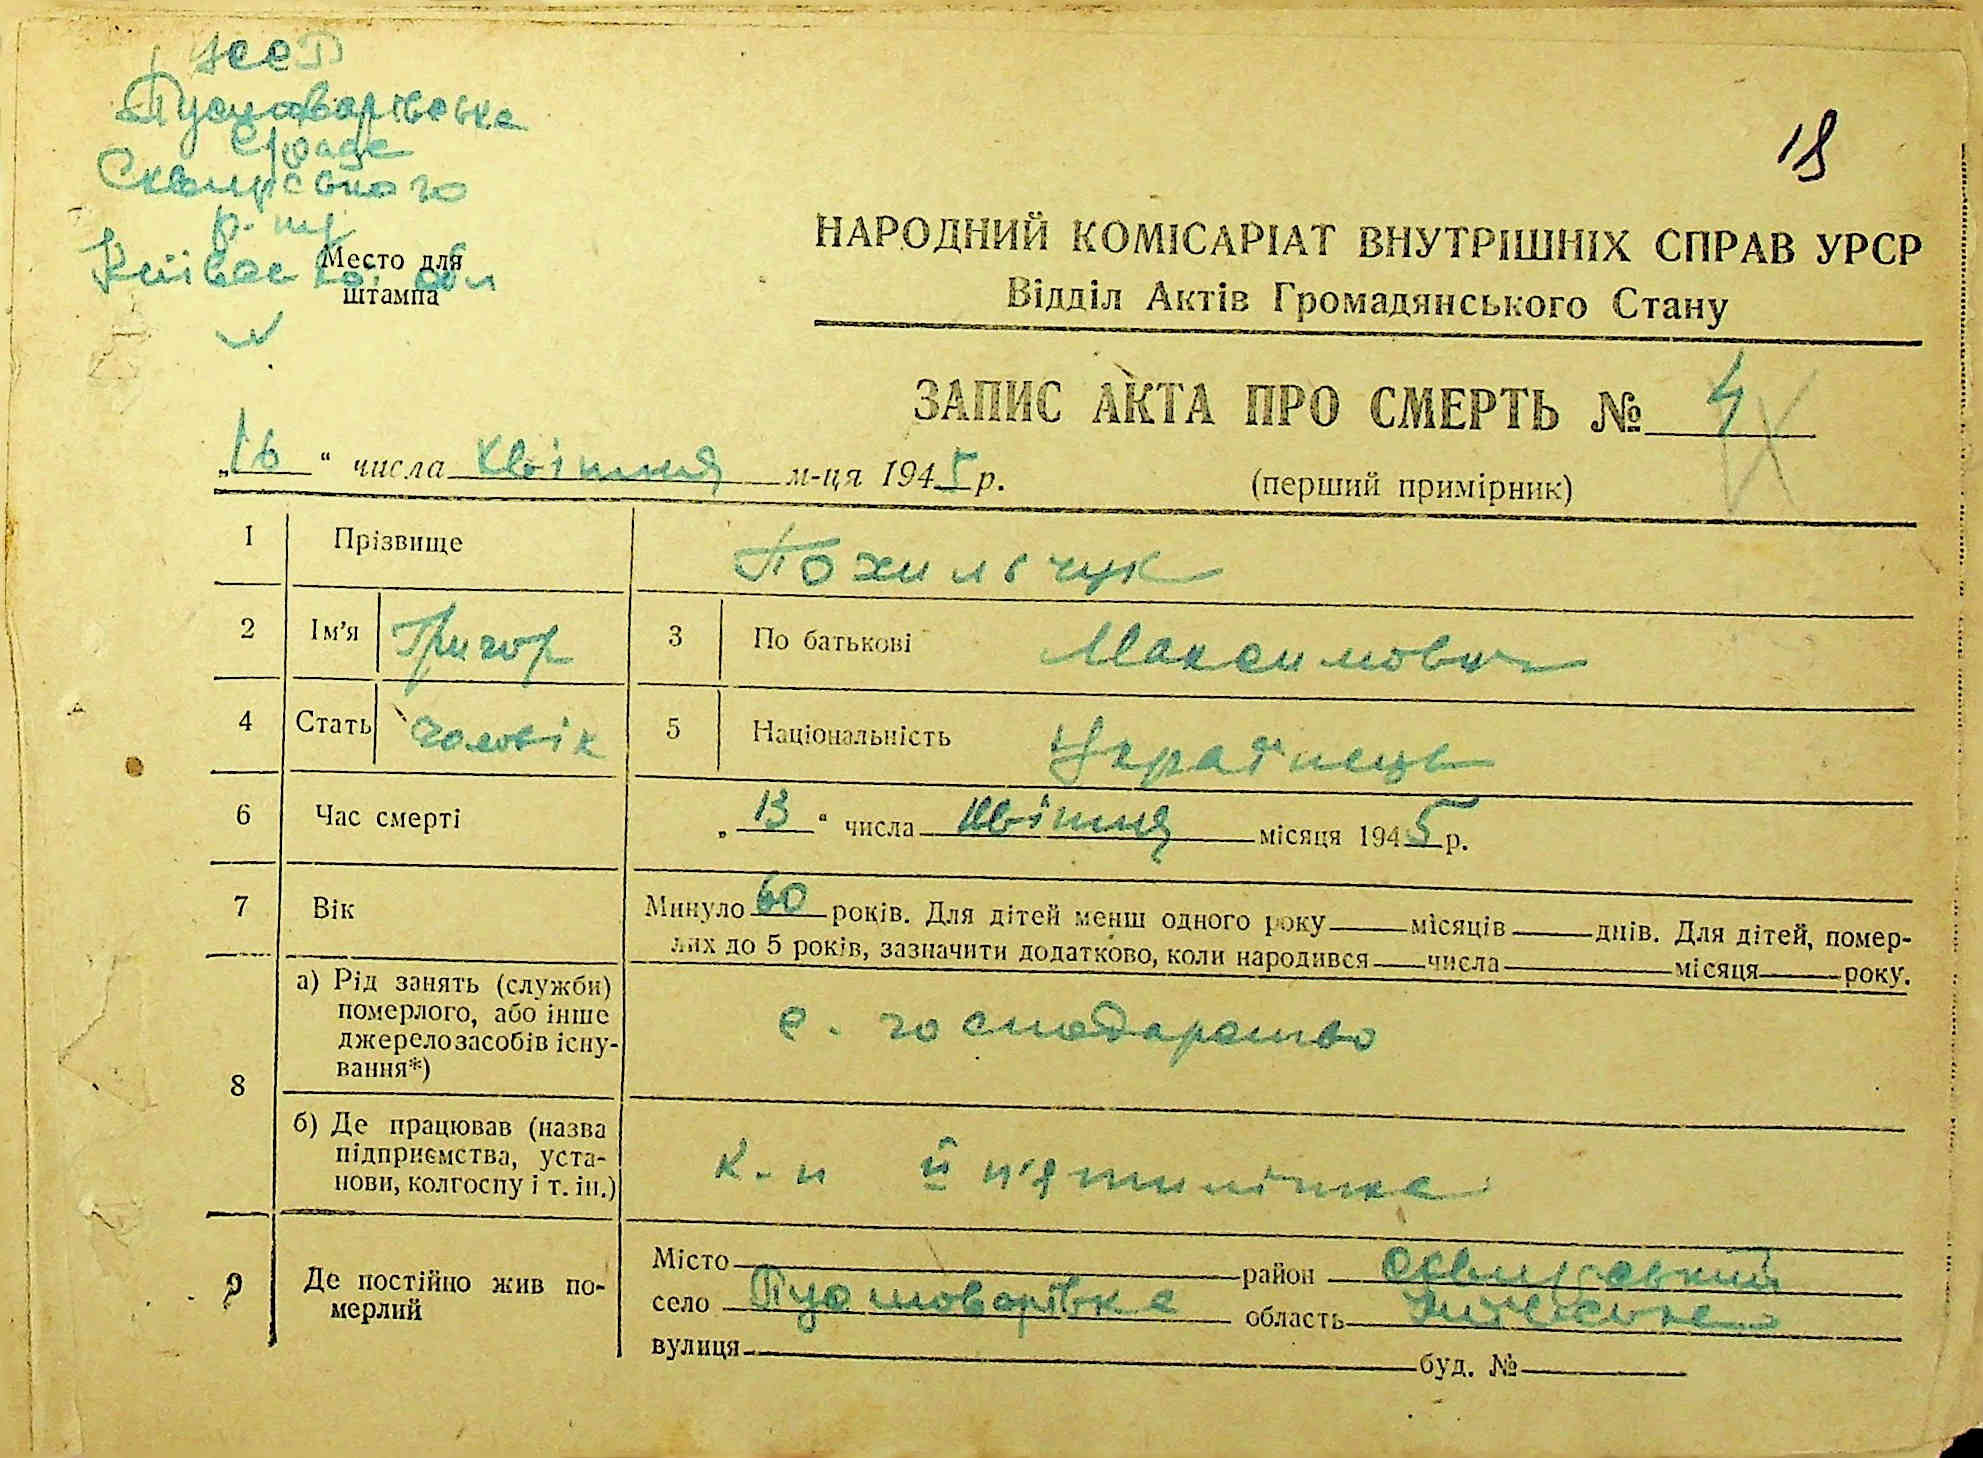 УССР
Пустоварівська
с/рада
Сквирського
р-ну
Київської обл
Место для
штампа
18
НАРОДНИЙ КОМІСАРІАТ ВНУТРІШНІХ СПРАВ УРСР
Відділ Актів Громадянського Стану
ЗАПИС АКТА ПРО СМЕРТЬ № 4
„16“ числа квітня м-ця 1945 р.
(перший примірник)
1 Прізвище Похильчук
2 Ім'я Григор 3 По батькові Максимович
4 Стать чоловік 5 Національність Українець
6 Час смерті „13“ числа квітня місяця 1945 р.
7 Вік Минуло 60 років. Для дітей менш одного року місяців днів. Для дітей, помер-
лих до 5 років, зазначити додатково, коли народився числа місяця року.
8 а) Рід занять (служби)
померлого, або інше
джерело засобів існу-
вання*)
с. господарство
б) Де працював (назва
підприємства, уста-
нови, колгоспу і т. ін.)
к-п II п'ятилітка
9 Де постійно жив по-
мерлий
Місто район Сквирський
село Пустоварівка область Київська
вулиця буд. №